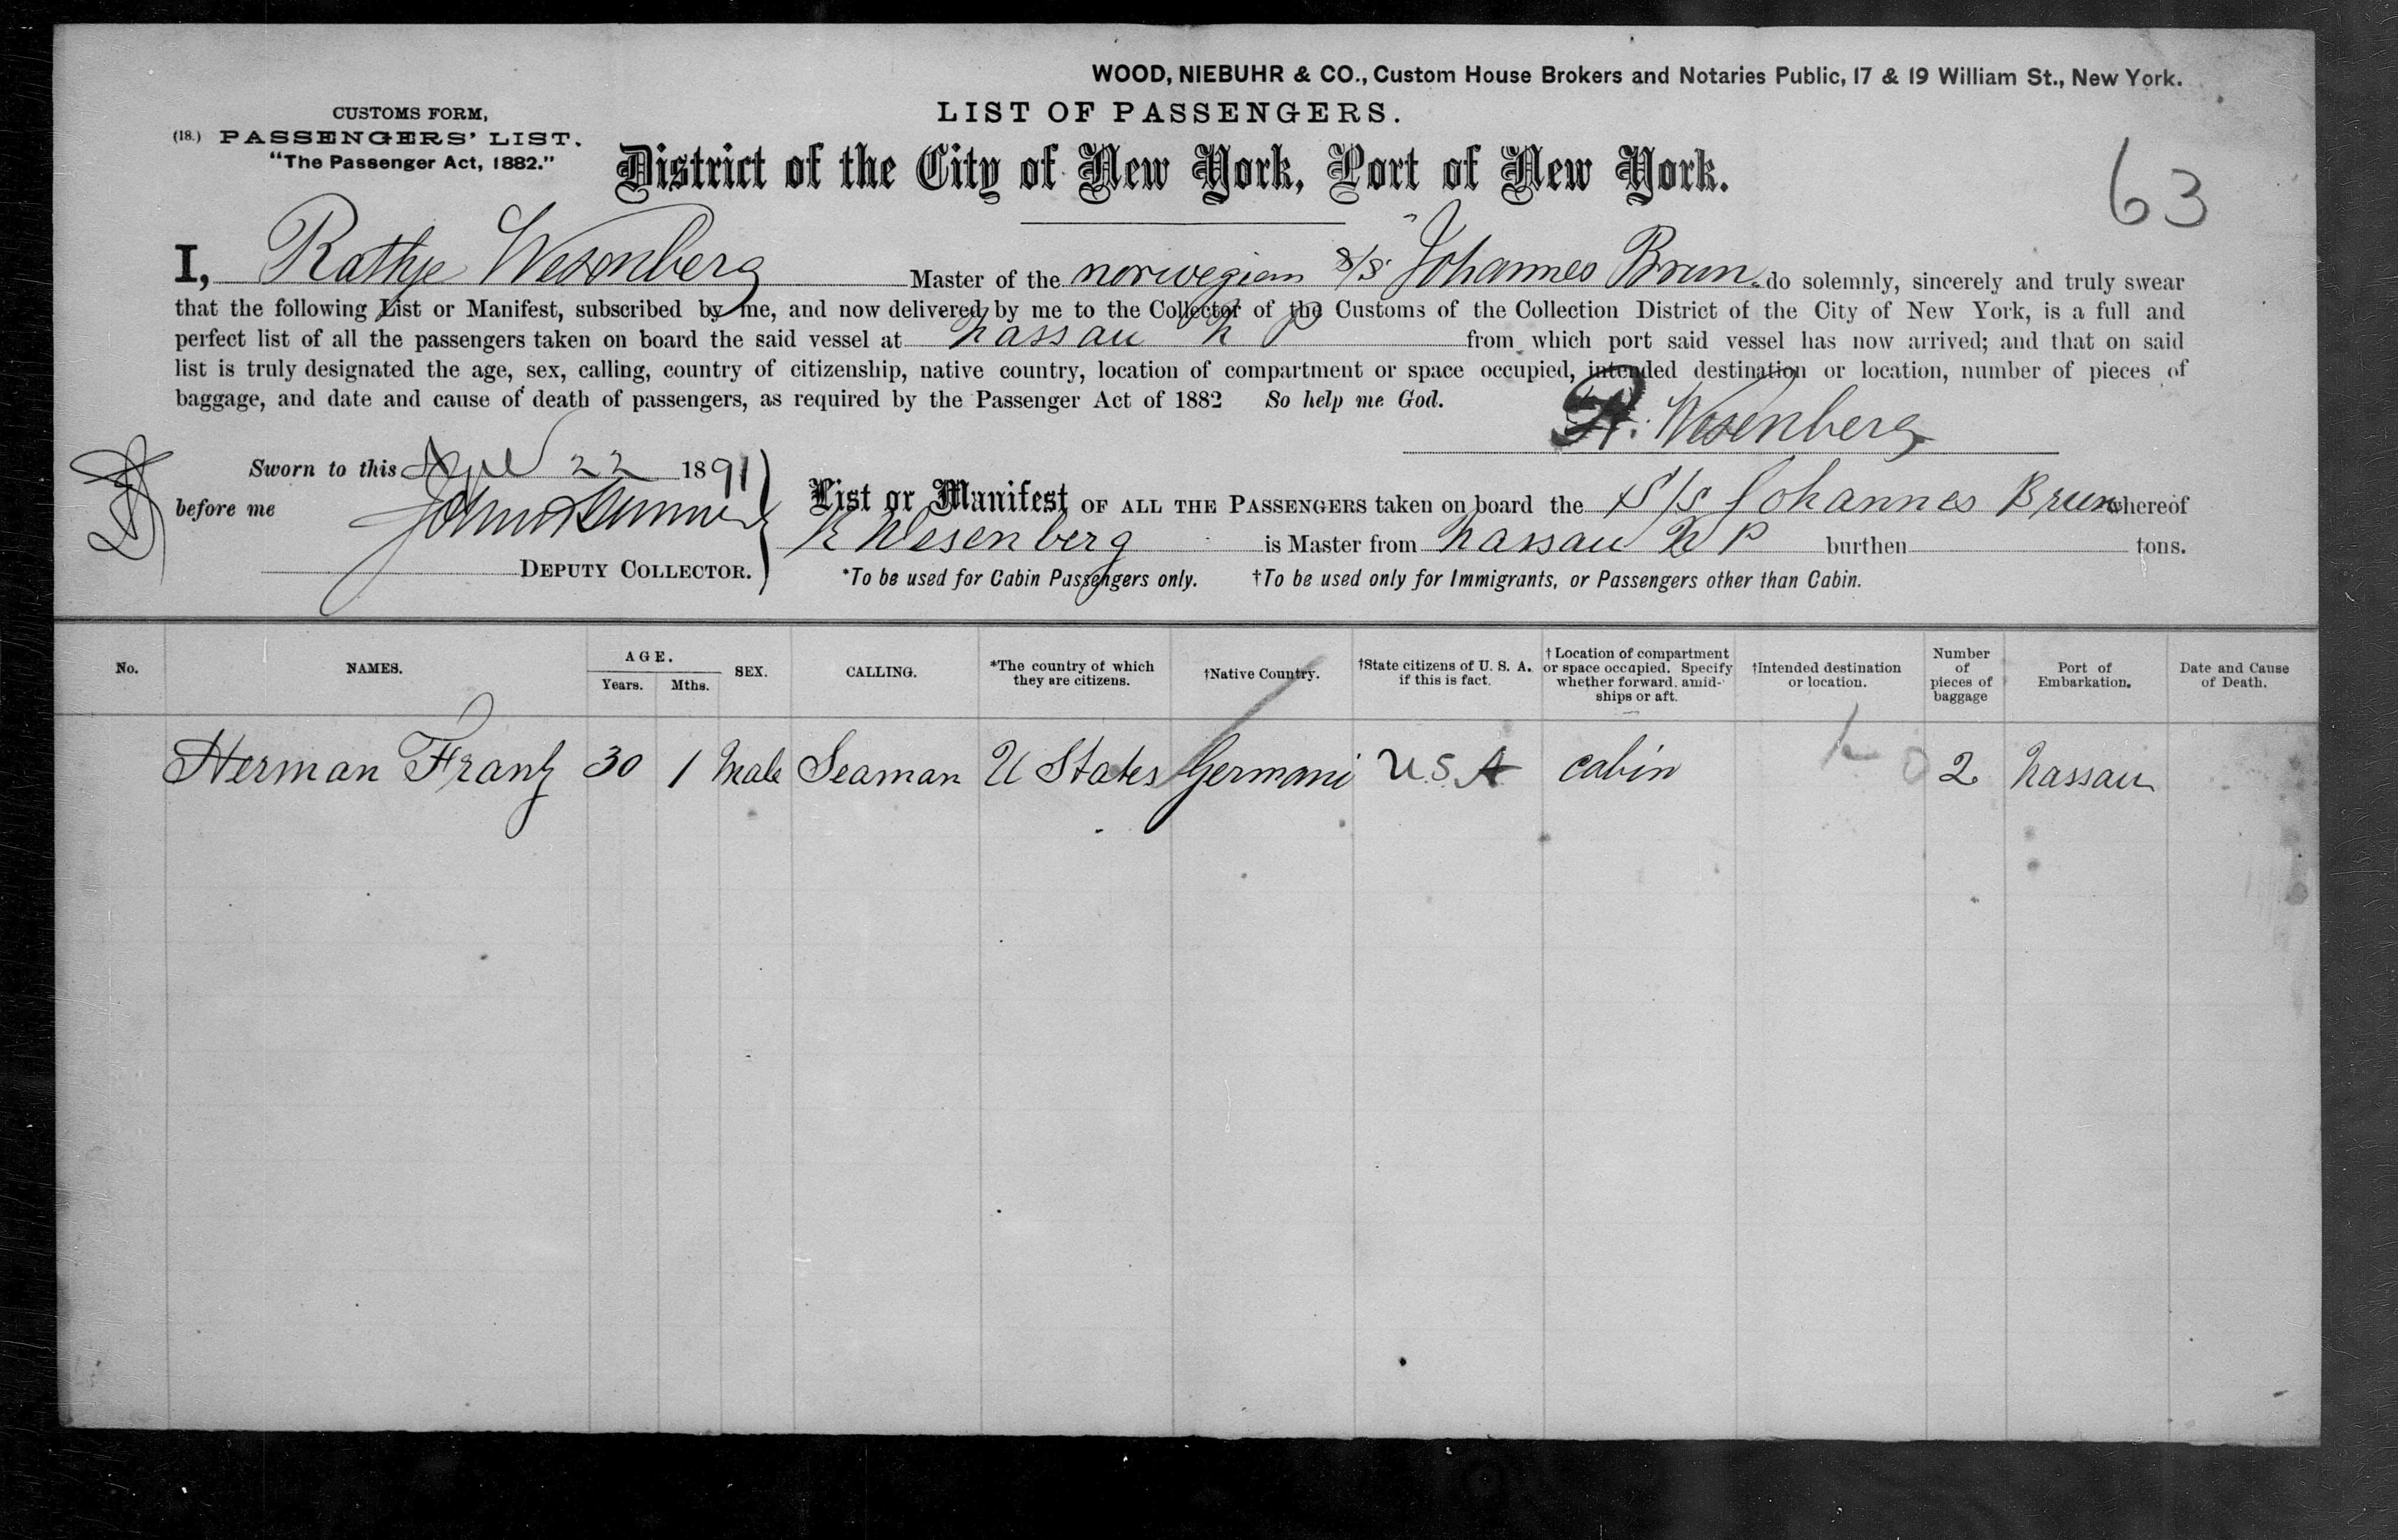 WOOD, NIEBUHR & CO., Custom House Brokers and Notaries Public, 17 & 19 William St., New York.
CUSTOMS FORM,
(18.) PASSENGERS' LIST.
"The Passenger Act, 1882."
LIST OF PASSENGERS.
District of the City of New York, Port of New York.
63
I, Rathje Wesenberg Master of the norwegian s/s Johannes Brun do solemnly, sincerely and truly swear
that the following List or Manifest, subscribed by me, and now delivered by me to the Collector of the Customs of the Collection District of the City of New York, is a full and
perfect list of all the passengers taken on board the said vessel at Nassau N P from which port said vessel has now arrived; and that on said
list is truly designated the age, sex, calling, country of citizenship, native country, location of compartment or space occupied, intended destination or location, number of pieces of
baggage, and date and cause of death of passengers, as required by the Passenger Act of 1882 So help me God.
R. Wesenberg
Sworn to this April 22 1891
before me
DEPUTY COLLECTOR.
List or Manifest OF ALL THE PASSENGERS taken on board the S/S Johannes Brun whereof
R Wesenberg is Master from Nassau N P burthen tons.
*To be used for Cabin Passengers only. †To be used only for Immigrants, or Passengers other than Cabin.
No.
NAMES.
AGE.
Years. Mths.
SEX.
CALLING.
*The country of which
they are citizens.
†Native Country.
†State citizens of U. S. A.
if this is fact.
†Location of compartment
or space occupied. Specify
whether forward, amid-
ships or aft.
†Intended destination
or location.
Number
of
pieces of
baggage
Port of
Embarkation.
Date and Cause
of Death.
Herman Frantz 30 1 Male Seaman U States Germani U.S.A cabin 2 Nassau